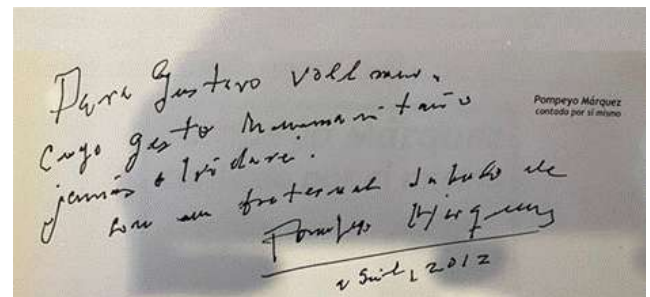 Para Gustavo Vollmer.
Cuyo gesto humanitario
jamás olvidaré.
Con un fraternal saludo de
Pompeyo Márquez
2012
Pompeyo Márquez
contado por sí mismo